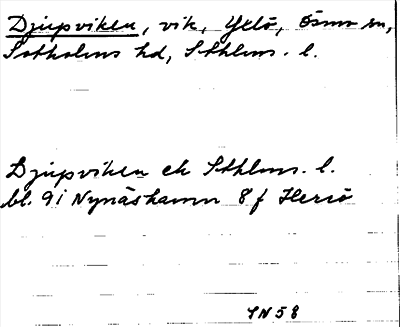 Djupviken, vik, Yxlö, Ösmo sn,
Sotholms hd, Sthlms. l.
Djupviken ek Sthlms. l.
bl. 9i Nynäshamn 8f Herrö
SN58